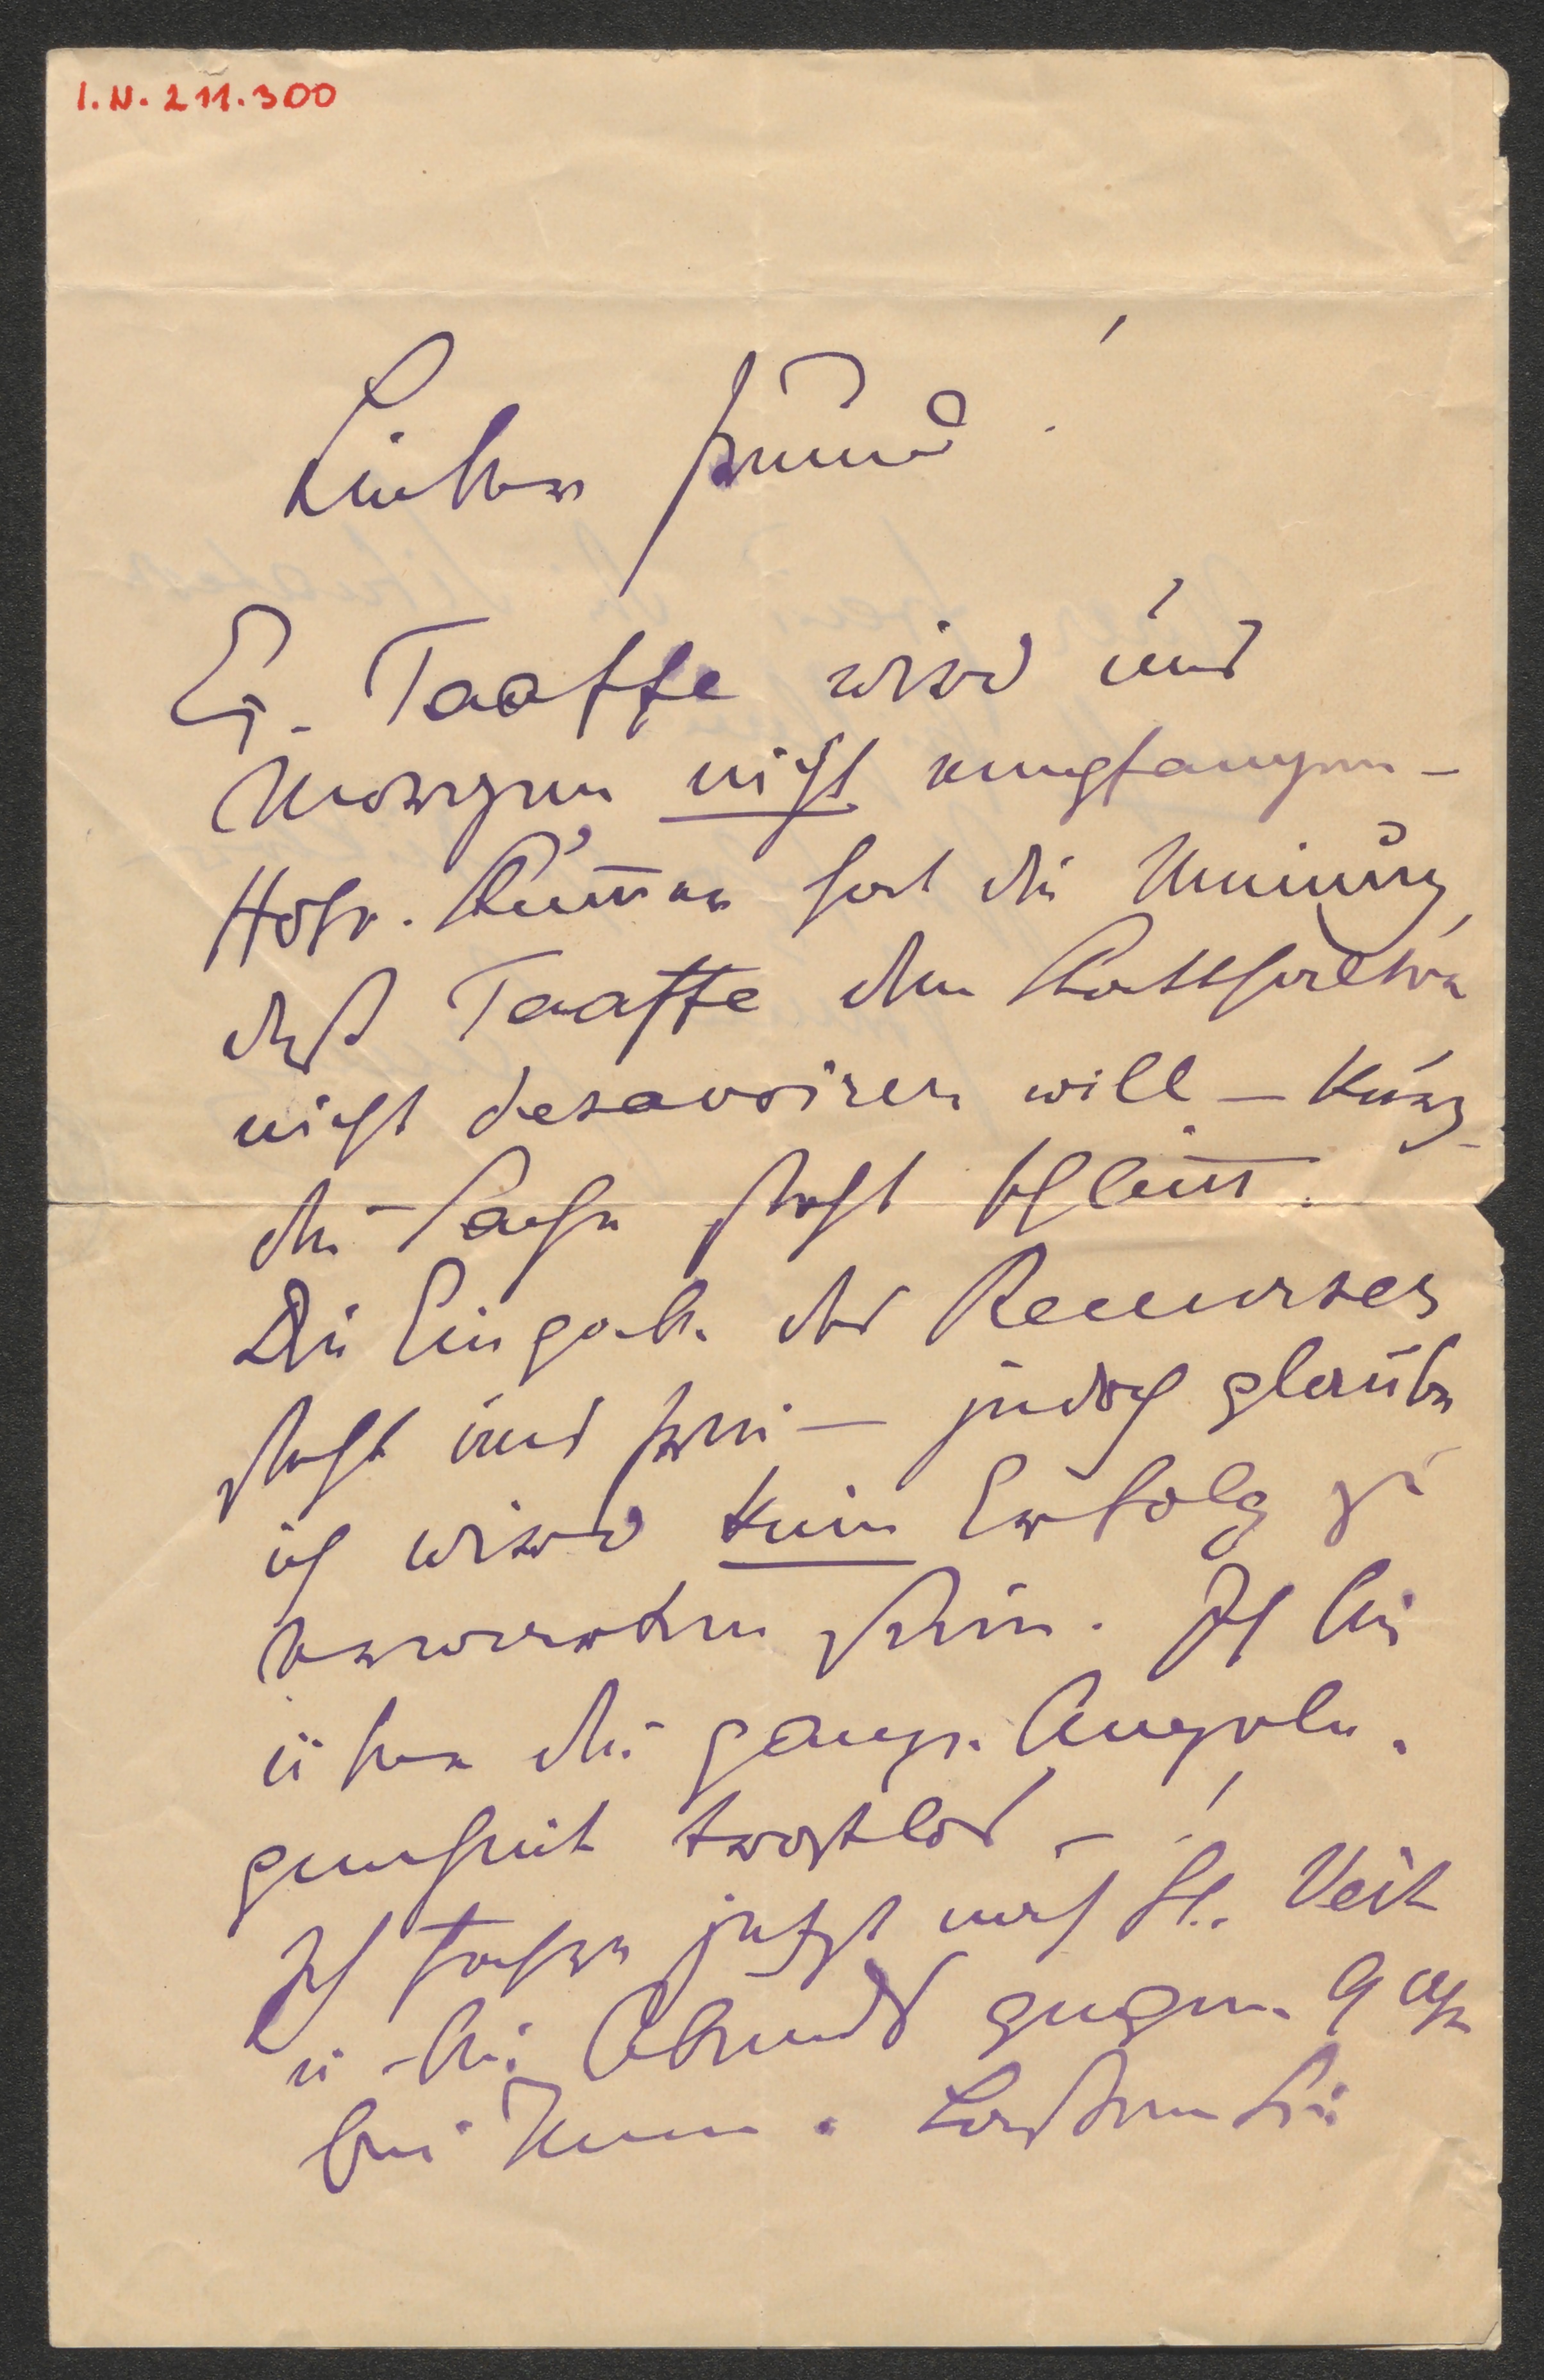 I.N. 211.300
Lieber Freund!
Ex. Taaffe wird uns
Morgen nicht empfangen –
Hofr. hat die Meinung,
daß Taaffe den Statthalter
nicht desavoiren will – kurz
die Sache steht schlimm.
Die Eingabe des Recurses
steht uns frei – jedoch glaube
ich wird kein Erfolg zu
erwarten sein. Ich bin
über die ganze Angele-
genheit trostlos –!
Ich fahre jetzt nach St. Veit
u bin Abends gegen 9 Uhr
bei Ihnen. Lassen Sie